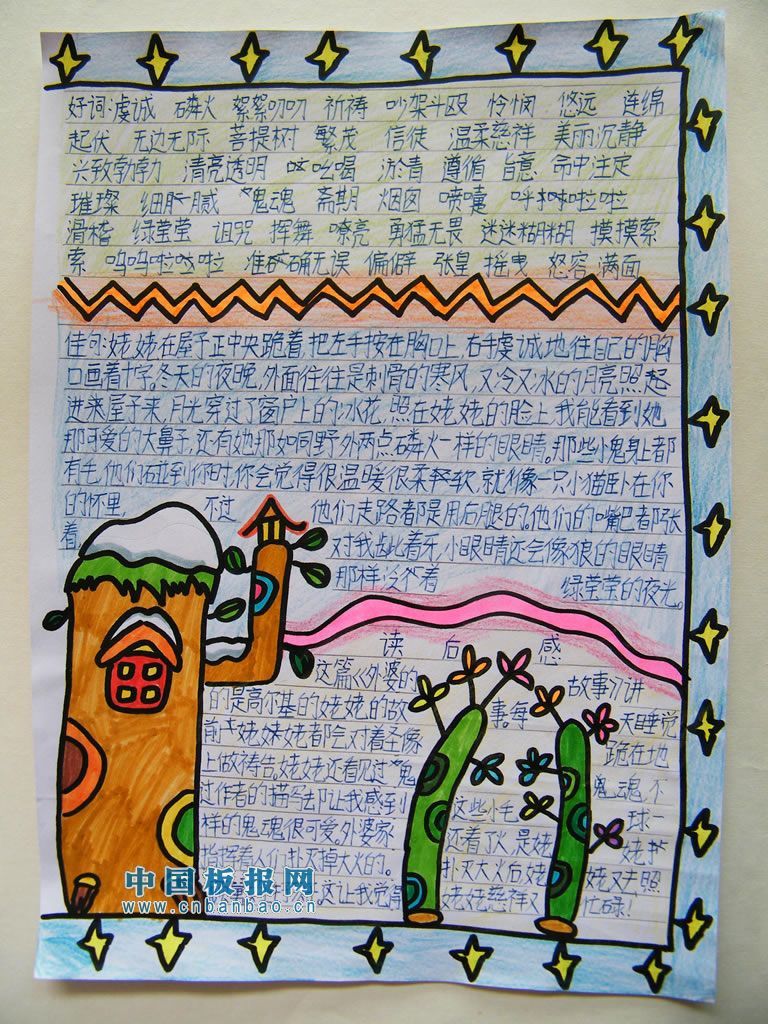 好词:虔诚 磷火 絮絮叨叨 祈祷 吵架斗殴 怜悯 悠远 连绵
起伏 无边无际 菩提树 繁茂 信徒 温柔慈祥 美丽沉静
兴致勃勃 清亮透明 吆喝 淤青 遵循 旨意 命中注定
璀璨 细腻 “鬼魂 斋期 烟囱 喷嚏 呼啦啦
滑稽 绿莹莹 诅咒 挥舞 嘹亮 勇猛无畏 迷迷糊糊 摸摸索
索 呜呜啦啦啦 准确无误 偏僻 张皇 摇曳 怒容满面
佳句:姥姥在屋子正中央跪着,把左手按在胸口上,右手虔诚地住自己的胸
口画着十字。冬天的夜晚,外面往往是刺骨的寒风,又冷又冰的月亮照起
进来屋子来,月光穿过了窗户上的冰花,照在姥姥的脸上我能看到她
那可爱的大鼻子,还有她那如同野外两点磷火一样的眼睛。那些小鬼身上都
有毛,他们碰到你时,你会觉得很温暖很柔轻软,就像一只小猫卧在你
的怀里, 不过 他们走路都是用后腿的。他们的嘴巴都张
着 对我龇着牙,小眼睛还会像狼的眼睛
那样冷 着 绿莹莹的夜光。
读后感
这篇《外婆的 故事》讲
的是高尔基的姥姥的故 事。每 天睡觉
前 姥姥都会对着圣像 跪在地
上做祷告。姥姥还看见过“鬼 鬼魂,不
过作者的描写却让我感到 这些小毛 球一
样的鬼魂很可爱。外婆家 还着了火是姥 姥
指挥着人们扑灭掉大火的。 扑灭大火后,姥 姥又去照
,这让我觉得 姥姥慈祥又 忙碌!
中国板报网
www.cnbanbao.cn